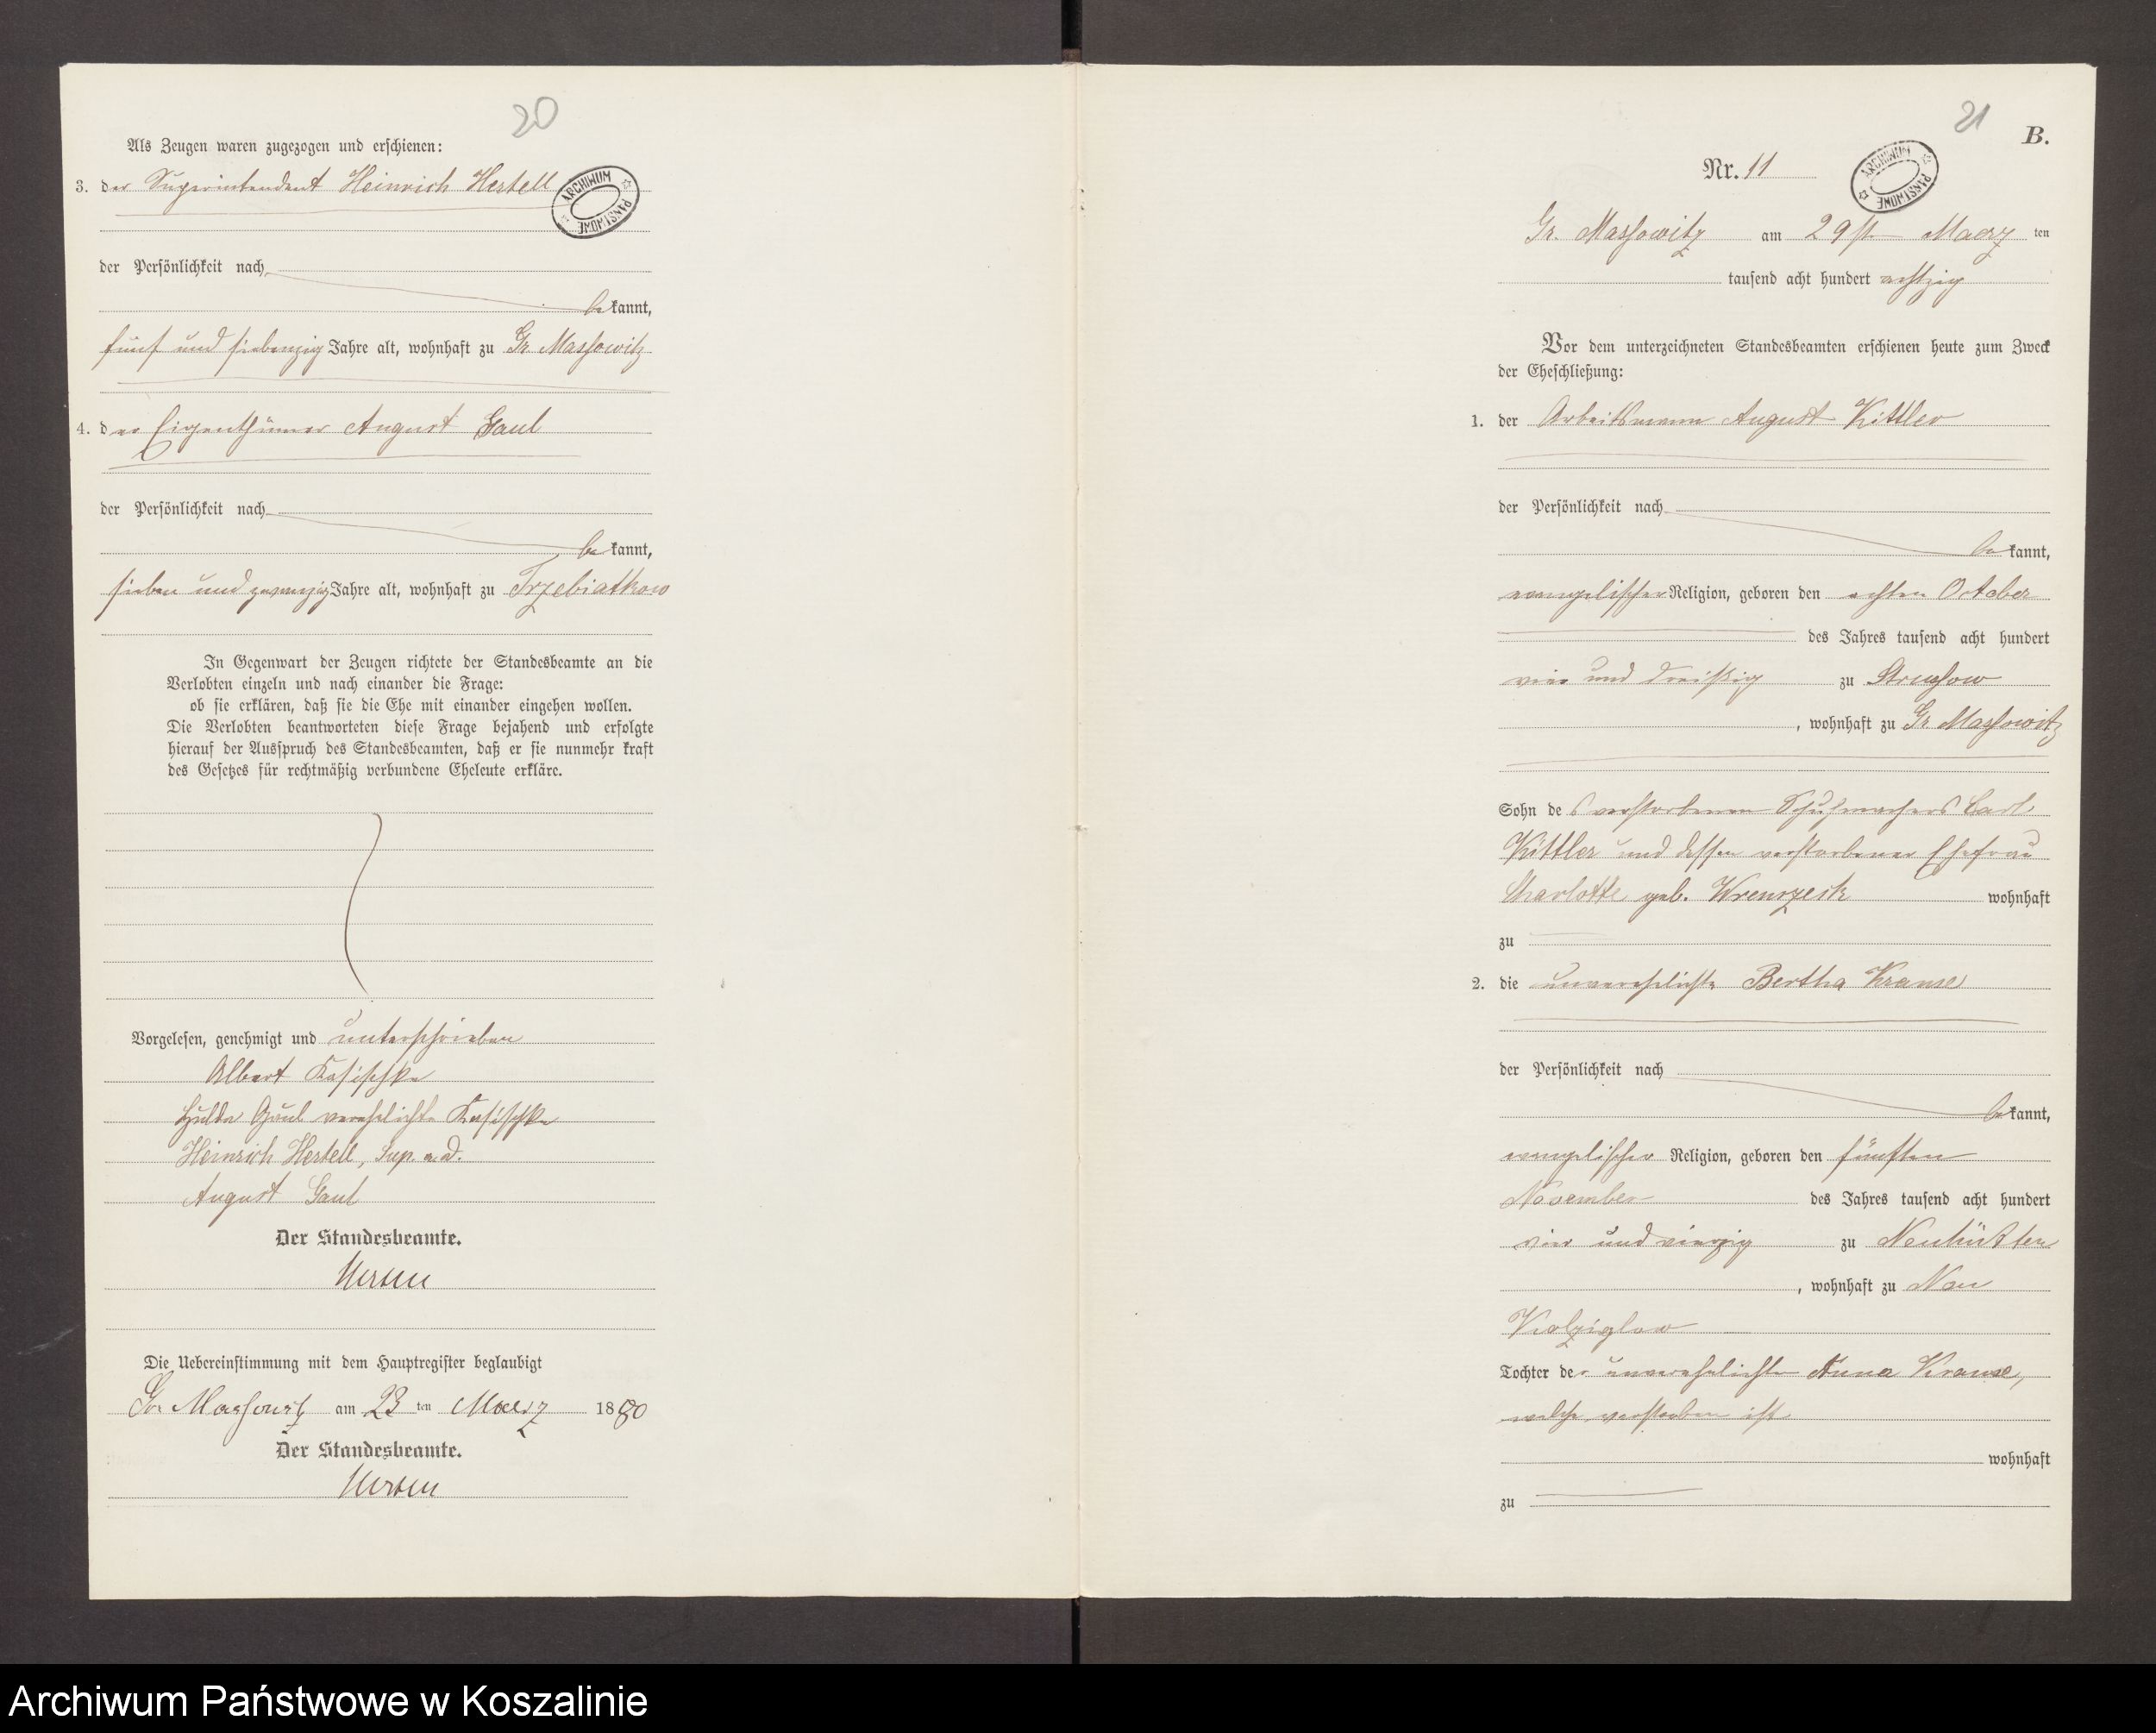 20
Als Zeugen waren zugezogen und erschienen:
3. der Superintendent Heinrich Hertell
ARCHIWUM PAŃSTWOWE
der Persönlichkeit nach
bekannt,
fünf und siebenzig Jahre alt, wohnhaft zu Gr. Massowitz
4. der Eigenthümer August Gaul
der Persönlichkeit nach
bekannt,
sieben und zwanzig Jahre alt, wohnhaft zu Trzebiatkow
In Gegenwart der Zeugen richtete der Standesbeamte an die
Verlobten einzeln und nach einander die Frage:
ob sie erklären, daß sie die Ehe mit einander eingehen wollen.
Die Verlobten beantworteten diese Frage bejahend und erfolgte
hierauf der Ausspruch des Standesbeamten, daß er sie nunmehr kraft
des Gesetzes für rechtmäßig verbundene Eheleute erkläre.
Vorgelesen, genehmigt und unterschrieben
Albert Kasischke
Hulda Gaul verehelichte Kasischke
Heinrich Hertell, Sup. a. d.
August Gaul
Der Standesbeamte.
Die Uebereinstimmung mit dem Hauptregister beglaubigt
Gr. Massowitz am 23 ten Maerz 1880
Der Standesbeamte.
21
B.
Nr. 11
ARCHIWUM PAŃSTWOWE
Gr. Massowitz am 29st Maerz ten
tausend acht hundert achtzig
Vor dem unterzeichneten Standesbeamten erschienen heute zum Zweck
der Eheschließung:
1. der Arbeitsmann August Kittler
der Persönlichkeit nach
bekannt,
evangelischer Religion, geboren den achten October
des Jahres tausend acht hundert
vier und dreißig zu Strussow
, wohnhaft zu Gr. Massowitz
Sohn des verstorbenen Schuhmachers Carl
Kittler und dessen verstorbener Ehefrau
Charlotte geb. wohnhaft
zu
2. die unverehelichte Bertha Krause
der Persönlichkeit nach
bekannt,
evangelischer Religion, geboren den fünften
November des Jahres tausend acht hundert
vier und vierzig zu Neuhütten
, wohnhaft zu Neu
Kolziglow
Tochter der unverehelichten Anna Krause,
welche verstorben ist
wohnhaft
zu
Archiwum Państwowe w Koszalinie